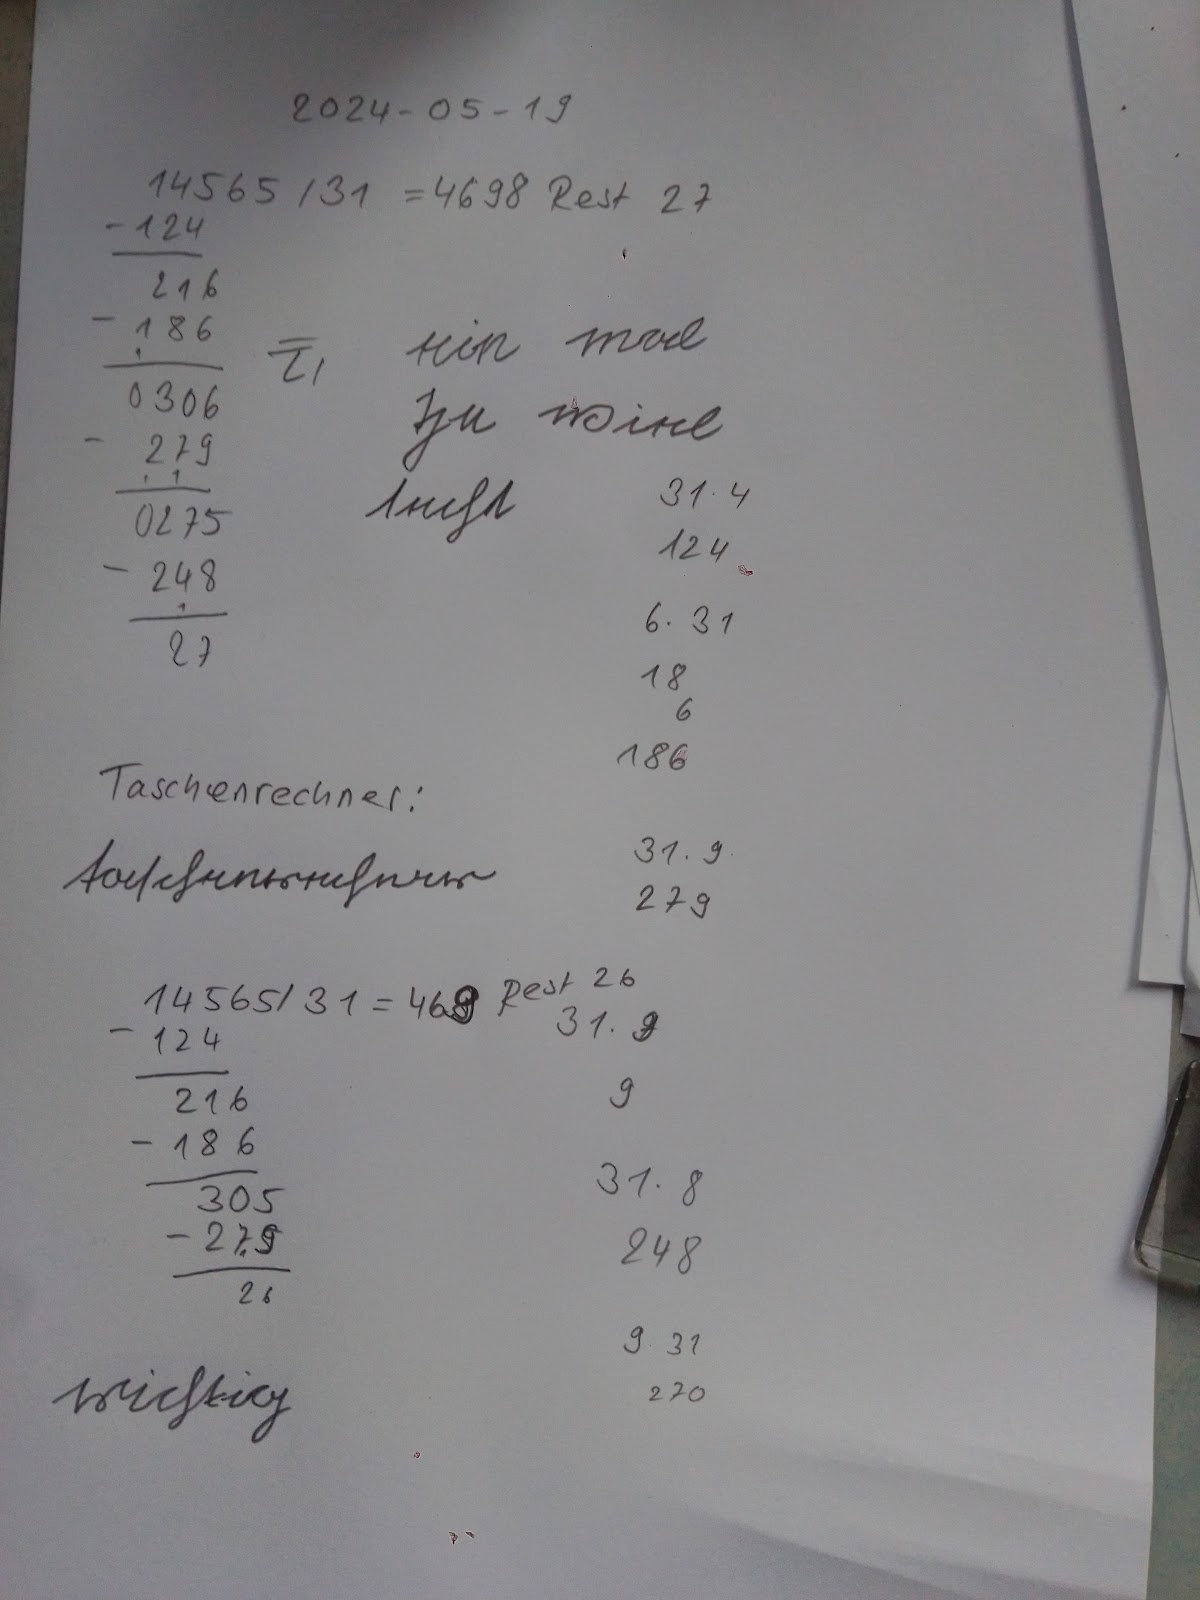 2024-05-19
14565 / 31 = 4698 Rest 27
-124
216
- 186
0306
- 279
0275
- 248
27
ein mal
zu viel
31 · 4
124
6 · 31
18
6
186
Taschenrechner:
taschenrechner
31 · 9
279
14565 / 31 = 469 Rest 26
- 124
216
- 186
305
- 279
26
31 · 9
9
31 · 8
248
9 31
270
wichtig